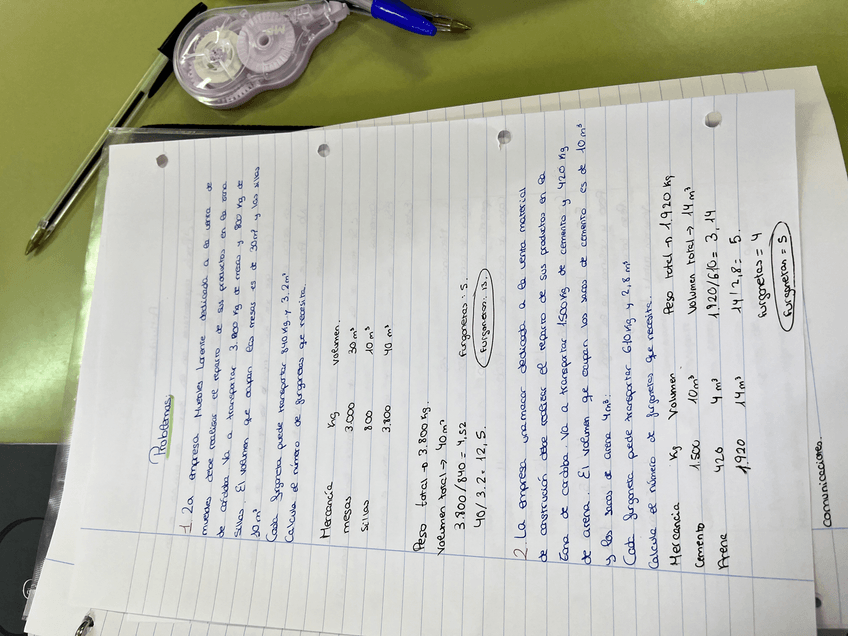 Problemas
1. La empresa Muebles Lorente dedicada a la venta de
muebles debe realizar el reparto de sus productos en la zona
de córdoba. Va a transportar 3.000 kg de mesas y 800 kg de
sillas. El volumen que ocupan las mesas es de 30m³ y las sillas
10 m³
Cada furgoneta puede transportar 840 kg y 3,2 m³
Calcula el número de furgonetas que necesita.
Mercancía Kg Volumen.
mesas 3.000 30 m³
sillas 800 10 m³
3.800 40 m³
Peso total → 3.800 kg.
Volumen total → 40 m³
3.800/840 = 4,52 furgonetas: 5.
40/3.2 = 12,5. furgonetas: 13.
2. La empresa unamacor dedicada a la venta material
de construcción debe realizar el reparto de sus productos en la
zona de cordoba. Va a transportar 1500 Kg de cemento y 420 Kg
de arena. El volumen que ocupan los sacos de cemento es de 10 m³
y los sacos de arena 4m³.
Cada furgoneta puede transportar 610 Kg y 2,8 m³
Calcula el número de furgonetas que necesita.
Mercancía Kg Volumen Peso total → 1.920 Kg
Cemento 1.500 10m³ Volumen total → 14m³
Arena 420 4m³ 1.920/610 = 3,14
1.920 14m³ 14/2,8 = 5.
furgonetas = 4
furgonetas = 5
comunicaciones.